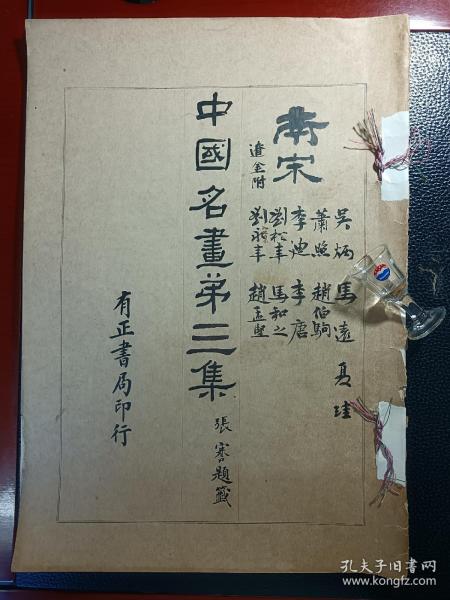 南宋
遼金附
吳炳 馬遠 夏珪
蕭照 趙伯駒
李迪 李唐
劉松年 馬和之
趙孟堅
中國名畫第三集
張謇題籤
有正書局印行
孔夫子旧书网
www.kongfz.com